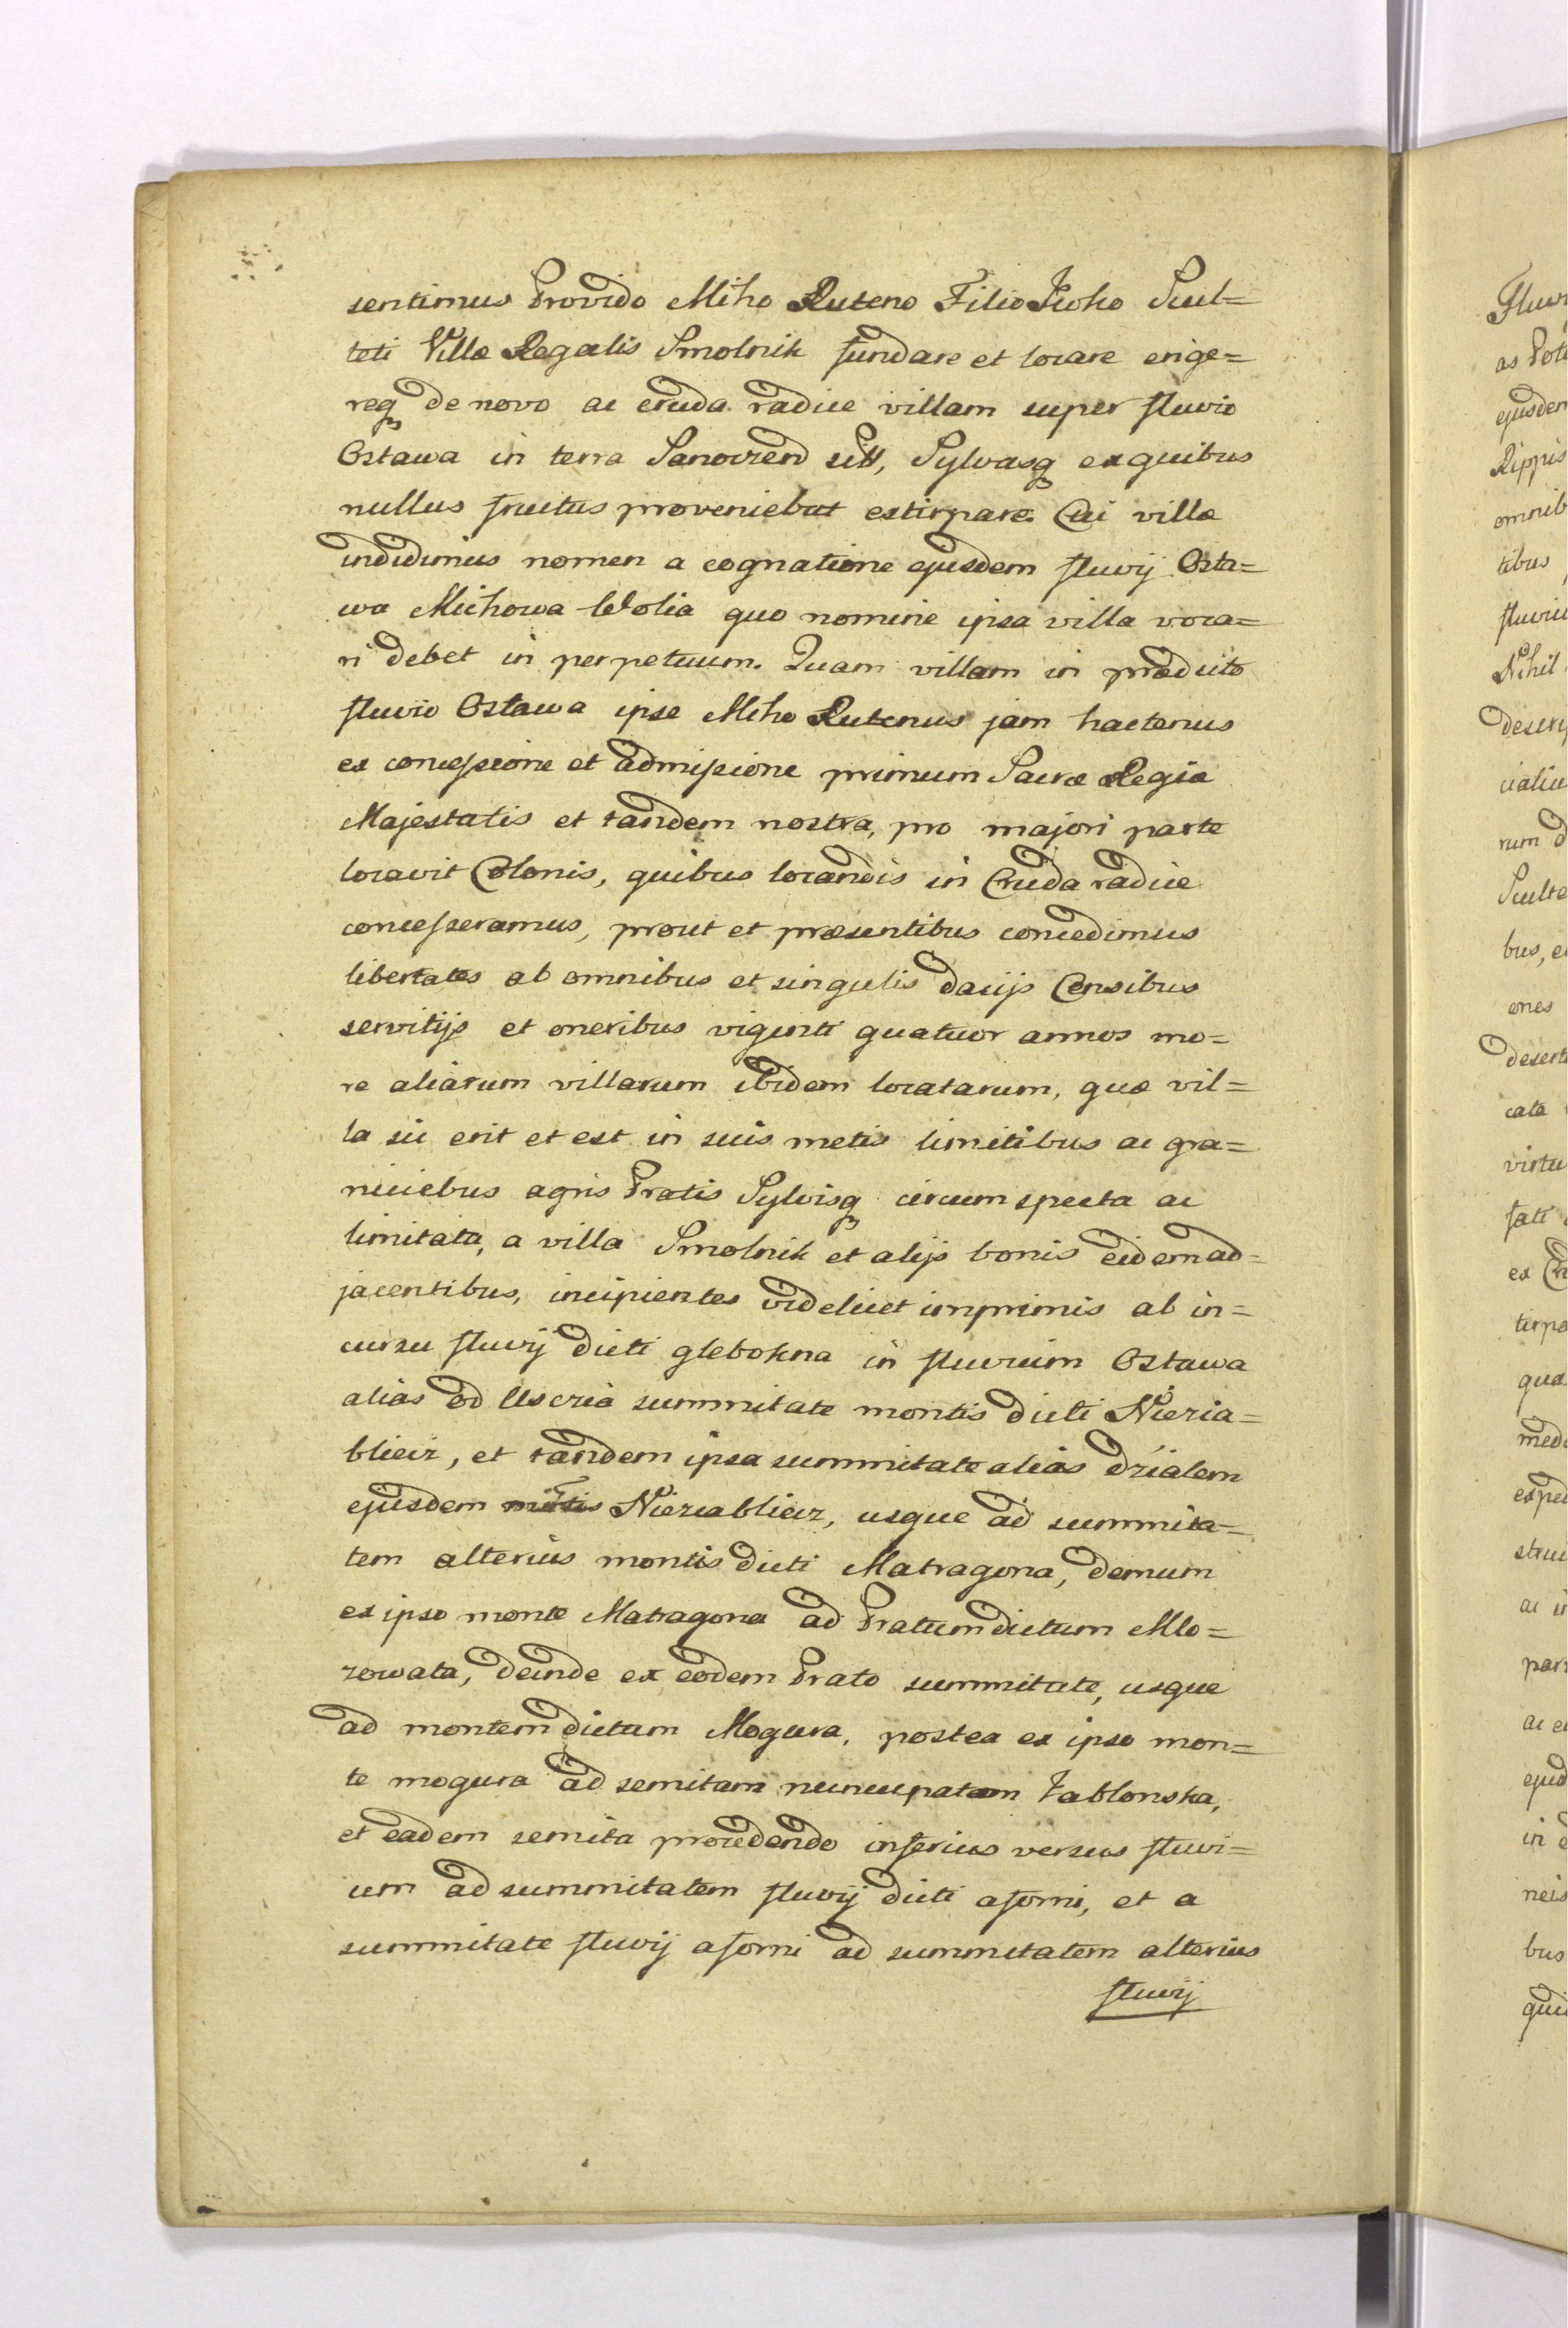 sentimus Provido Miho Ruteno Filio Jwoho Scul=
teti Villæ Regalis Smolnik fundare et locare erige=
req de novo ac cruda radice villam super fluvio
Ostawa in terra Sanocien sitt, Sylvasq ex quibus
nullus fructus proveniebat extirpare. Cui villæ
indidimus nomen a cognatione ejusdem fluvij Osta=
wa Michowa Wolia quo nomine ipsa villa voca=
ri debet in perpetuum. Quam villam in prædicto
fluvio Ostawa ipse Miho Rutenus jam hactenus
ex concessione et admissione primum Sacræ Regiæ
Majestatis et tandem nostra, pro majori parte
locavit Colonis, quibus locandis in Cruda radice
concesseramus, prout et præsentibus concedimus
libertates ab omnibus et singulis dacijs Censibus
servitijs et oneribus viginti quatuor annos mo=
re aliarum villarum ibidem locatarum, quæ vil=
la sic erit et est in suis metis limitibus ac gra=
niciebus agris Pratis Sylvisq circumspecta ac
limitata, a villa Smolnik et alijs bonis eidem ad=
jacentibus, incipientes videlicet imprimis ab in=
cursu fluvij dicti glebokna in fluvium Ostawa
alias od Uscria summitate montis dicti Nieria=
blieir, et tandem ipsa summitate alias dzialem
ejusdem mõtis Nieriablieir, usque ad summita=
tem alterius montis dicti Matragona, demum
ex ipso monte Matragona ad Pratum dictum Mlo=
zowata, deinde ex eodem Prato summitate, usque
ad montem dictum Mogura, postea ex ipso mon=
te mogura ad semitam nuncupatam Jablonska,
et eadem semita procedendo inferius versus fluvi=
um ad summitatem fluvij dicti aforni, et a
summitate fluvij aforni ad summitatem alterius
fluvij
Fluvi
as Poto
ejusdem
Rippis
omnib
tibus
fluviu
Nihil
descri
cialiu
rum d
Sculte
bus, e
ones
desert
cata
virtu
fati
ex Cr
tirpa
quæ
med
exped
stru
ac i
par
ac e
ejusd
in
neis
bus
qui